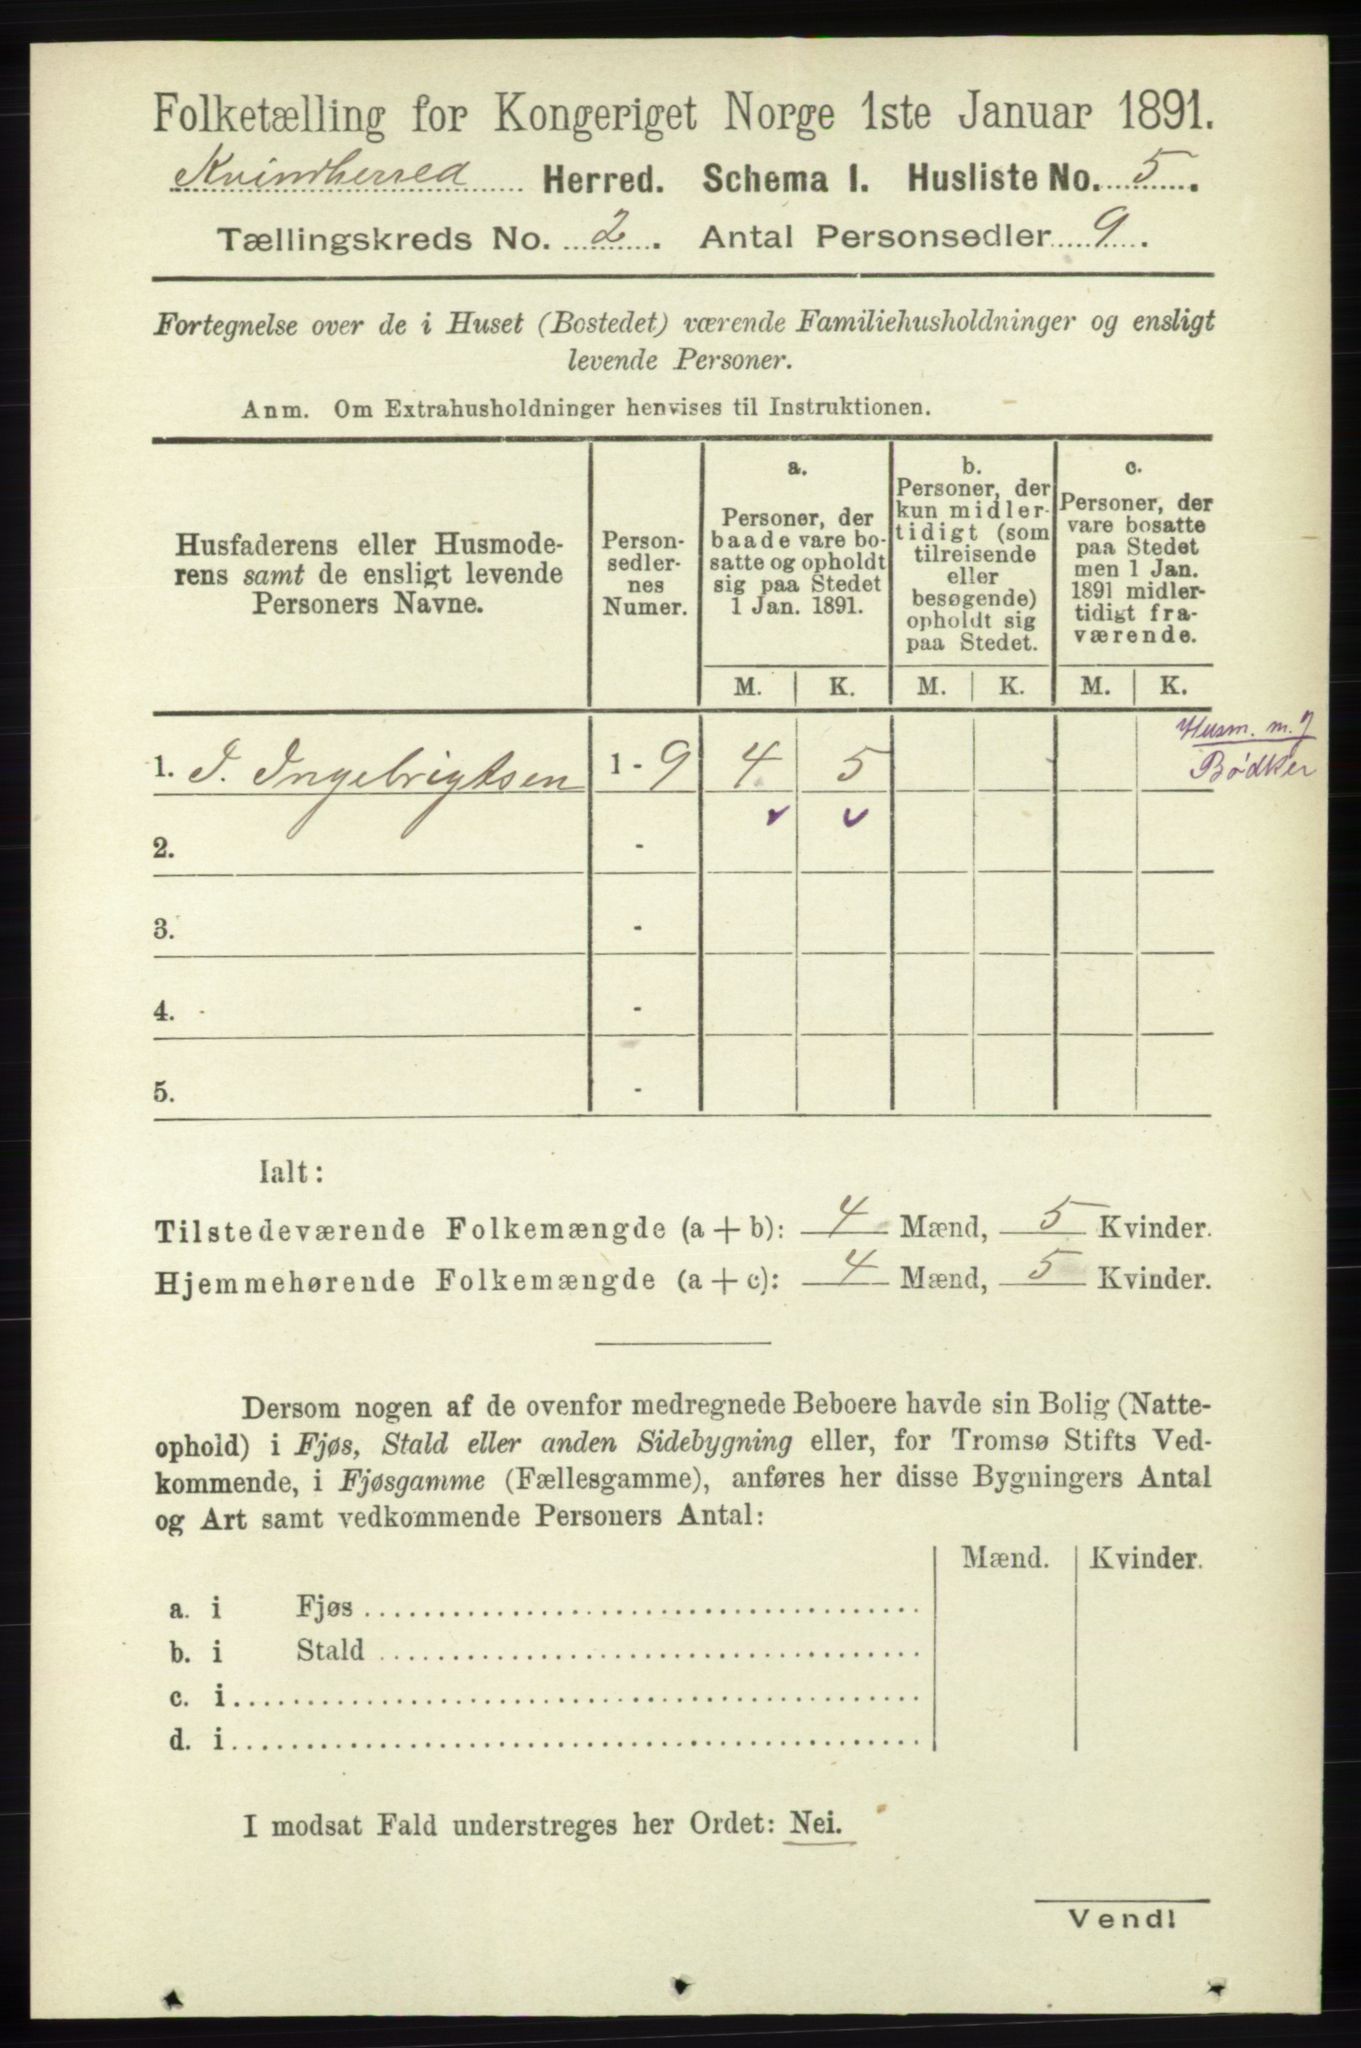 Folketælling for Kongeriget Norge 1ste Januar 1891.
Kvindherred Herred. Schema I. Husliste No. 5.
Tællingskreds No. 2. Antal Personsedler 9.
Fortegnelse over de i Huset (Bostedet) værende Familiehusholdninger og ensligt
levende Personer.
Anm. Om Extrahusholdninger henvises til Instruktionen.
Husfaderens eller Husmode-
rens samt de ensligt levende
Personers Navne.
Person-
sedler-
nes
Numer.
a.
Personer, der
baade vare bo-
satte og opholdt
sig paa Stedet
1 Jan. 1891.
b.
Personer, der
kun midler-
tidigt (som
tilreisende
eller
besøgende)
opholdt sig
paa Stedet.
c.
Personer, der
vare bosatte
paa Stedet
men 1 Jan.
1891 midler-
tidigt fra-
værende.
M. K. M. K. M. K.
Husm. m. J
Bødker
1. I. Ingebrigtsen 1 - 9 4 5
2. -
3. -
4. -
5. -
Ialt:
Tilstedeværende Folkemængde (a + b): 4 Mænd, 5 Kvinder.
Hjemmehørende Folkemængde (a + c): 4 Mænd, 5 Kvinder.
Dersom nogen af de ovenfor medregnede Beboere havde sin Bolig (Natte-
ophold) i Fjøs, Stald eller anden Sidebygning eller, for Tromsø Stifts Ved-
kommende, i Fjøsgamme (Fællesgamme), anføres her disse Bygningers Antal
og Art samt vedkommende Personers Antal:
Mænd. Kvinder.
a. i Fjøs
b. i Stald
c. i
d. i
I modsat Fald understreges her Ordet: Nei.
Vend!